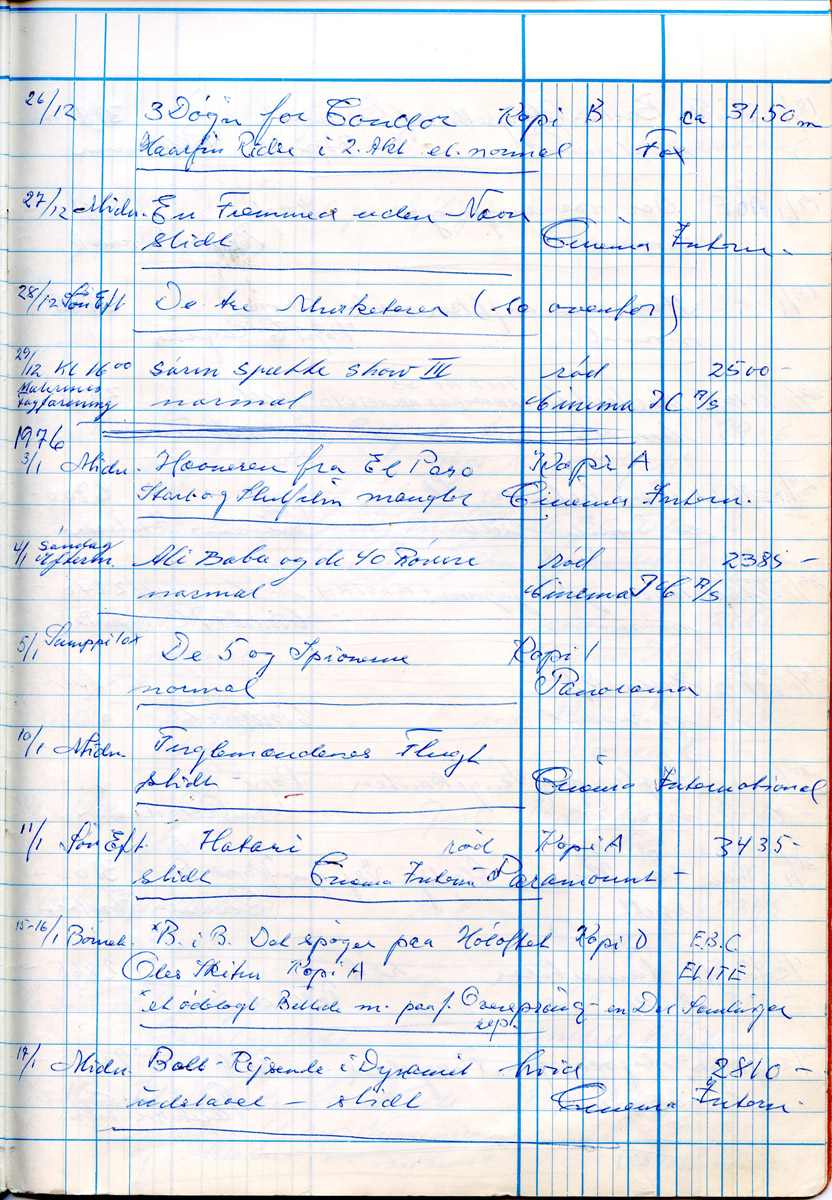 26/12 3 Døgn for Condor Kopi B ca 3150 m
Haarfin Ridse i 2. Akt el. normal Fox
27/12 Midn. En Fremmed uden Navn
slidt Cinema Intern.
28/12 Søn Eft De tre Musketerer (se ovenfor)
29/12 Kl 16 00 Sørin Spætte Show III rød 2500 –
Malernes Fagforening normal Cinema I C A/S
1976
3/1 Midn. Hævneren fra El Paso Kopi A
Start og Slutfilm mangler Cinema Intern.
4/1 Søndag Efterm. Ali Baba og de 40 Røvere rød 2385 –
normal Cinema I C A/S
5/1 De 5 og Spionerne Kopi 1
normal Panorama
10/1 Midn. Fuglemændenes Flugt
slidt Cinema International
11/1 Søn Eft. Hatari rød Kopi A 3435 –
slidt Cinema Intern Paramount –
15-16/1 Børneh. *B. i B. Det spøger paa Høloftet Kopi D E.B.C
Oles Skitur Kopi A ELITE
* et ødelagt Billede m. perf. Overspring – en Del Samlinger
rep.
17/1 Midn. Bolt – Rejsende i Dynamit hvid 2810 –
udstavet – slidt Cinema Intern.